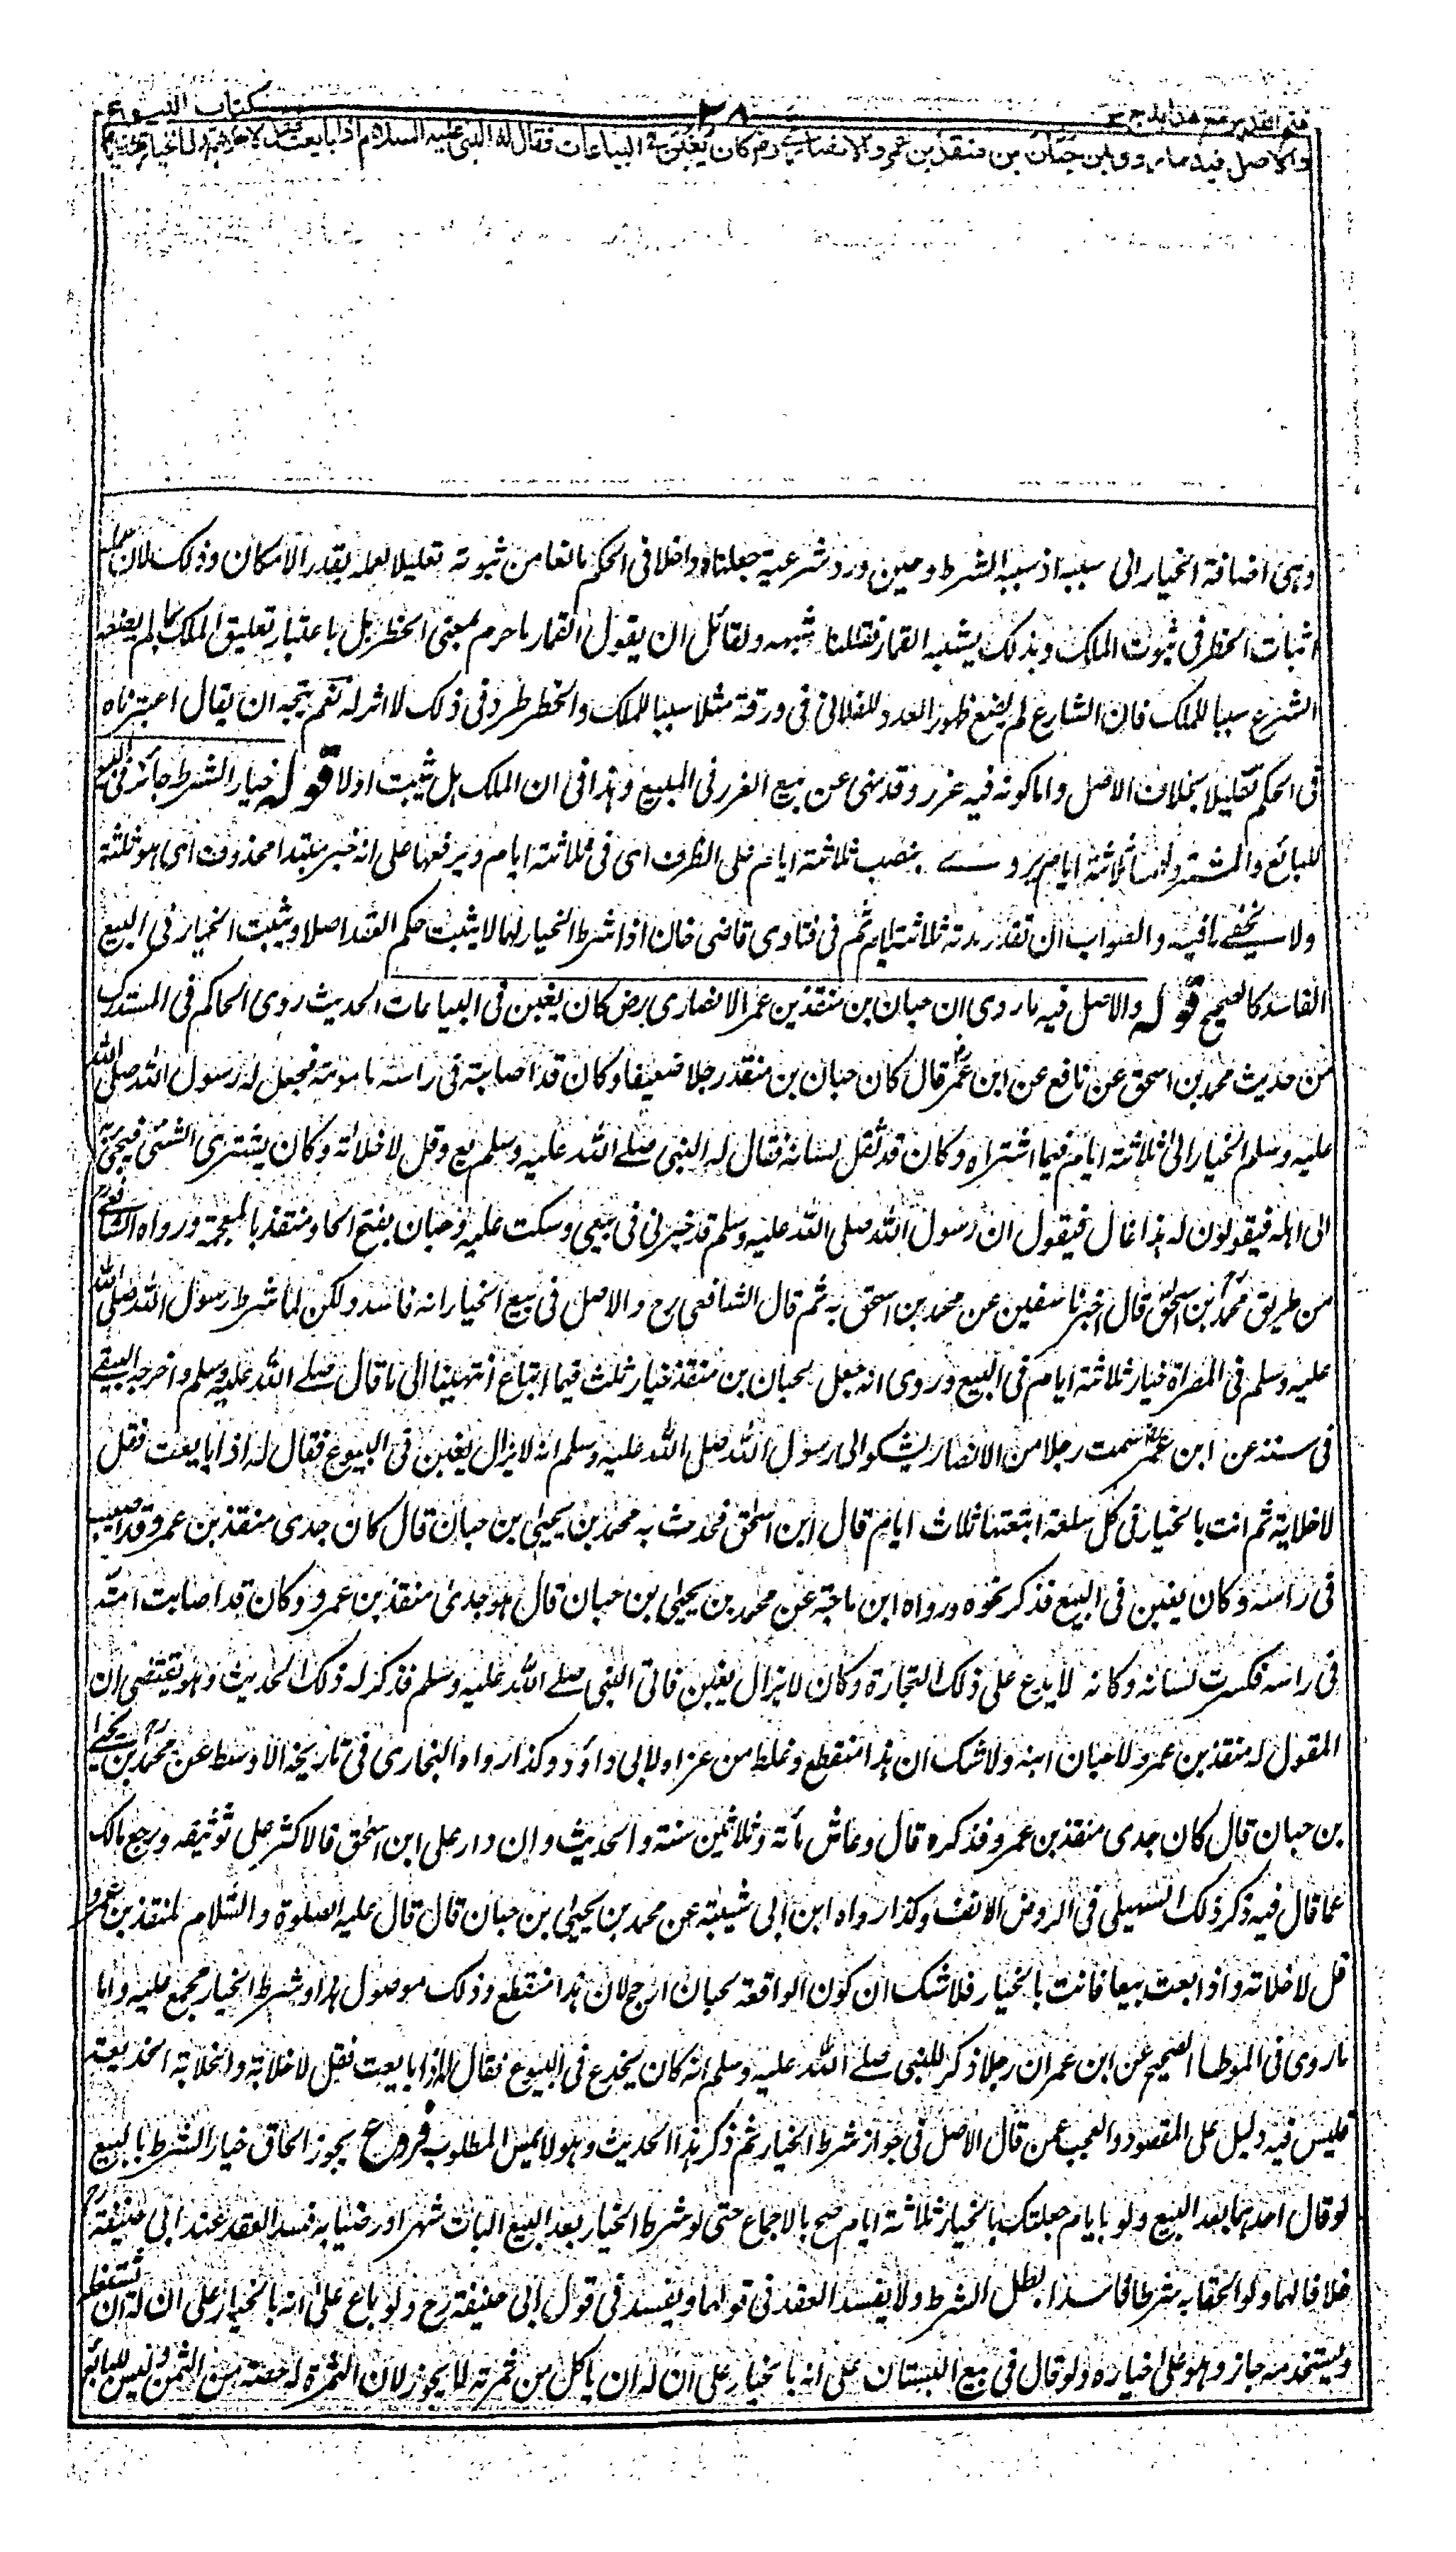 فتح القدير مع هدايه ج ٣
٢٨
كتاب البيوع
والاصل فيه ما روى ان حبان بن منقذ بن عمرو الانصاري رض كان يغبن في البياعات فقال له النبي عليه السلام اذا بايعت فقل لا خلابة ولي الخيار
وہى اضافة الخيار الى سببه اذ سببه الشرط وحين ورد شرعية جعلناه داخلا فى الحكم مانعا من ثبوته تقليلا لعمله بقدر الامكان وذلك لان
اثبات الخطر فى ثبوت الملك وبذلك يشبه القمار فقللنا شبهه ولقائل ان يقول القمار ما حرم لمعنى الخطر بل باعتبار تعليق الملك بما لم يضعه
الشرع سببا للملك فان الشارع لم يضع ظهور العدد الفلانى فى ورقة مثلا سببا للملك والخطر طرد فى ذلك لا اثر له نعم يتجه ان يقال اعتبرناه
فى الحكم تقليلا بخلاف الاصل واما كونه فيه غرر وقد نهى عن بيع الغرر فى المبيع وہذا فى ان الملك ہل يثبت اولا قوله خيار الشرط جائز فى البيع
للبائع والمشترى ولہما ثلاثة ايام يروى بنصب ثلاثة ايام على الظرف اى فى ثلاثة ايام وبرفعها على انه خبر مبتدا محذوف اى ہو ثلثة
ولا يخفى ما فيه والصواب ان تقدر مدته ثلاثة ايام ثم فى فتاوى قاضى خان اذا شرط الخيار لہما لا يثبت حكم العقد اصلا ويثبت الخيار فى البيع
الفاسد كالصحيح قوله والاصل فيه ما روى ان حبان بن منقذ بن عمر الانصارى رض كان يغبن فى البياعات الحديث روى الحاكم فى المستدرك
من حديث محمد بن اسحق عن نافع عن ابن عمر رض قال كان حبان بن منقذ رجلا ضعيفا وكان قد اصابته فى راسه مامومة فجعل له رسول الله صلى الله
عليه وسلم الخيار الى ثلاثة ايام فيما اشتراه وكان قد ثقل لسانه فقال له النبى صلے الله عليه وسلم بع وقل لا خلابة وكان يشترى الشئ فيجئ به
الى اہله فيقولون له ہذا غال فيقول ان رسول الله صلى الله عليه وسلم قد خيرنى فى بيعى وسكت عليه وحبان بفتح الحا ومنقذ بالمعجمة ورواه الشافعى رح
من طريق محمد بن اسحق قال اخبرنا سفين عن محمد بن اسحق به ثم قال الشافعى رح والاصل فى بيع الخيار انه فاسد ولكن لما شرط رسول الله صلى الله
عليه وسلم فى المصراة خيار ثلاثة ايام فى البيع وروى انه جعل لحبان بن منقذ خيار ثلث فيما ابتاع انتهينا الى ما قال صلے الله عليه وسلم واخرجه البيهقى
فى سننه عن ابن عمر رض سمعت رجلا من الانصار يشكو الى رسول الله صلى الله عليه وسلم انه لا يزال يغبن فى البيوع فقال له اذا بايعت فقل
لا خلابة ثم انت بالخيار فى كل سلعة ابتعتها ثلاث ايام قال ابن اسحق فحدث به محمد بن يحيى بن حبان قال كان جدى منقذ بن عمرو قد اصيب
فى راسه وكان يغبن فى البيع فذكر نحوه ورواه ابن ماجة عن محمد بن يحيى بن حبان قال ہو جدى منقذ بن عمرو وكان قد اصابت امة
فى راسه فكسرت لسانه وكانه لا يدع على ذلك التجارة وكان لا يزال يغبن فاتى النبى صلے الله عليه وسلم فذكر له ذلك الحديث وہو يقتضى ان
المقول له منقذ بن عمرو لا حبان ابنه ولا شك ان ہذا منقطع وغلط من عزاه لابى داؤد وكذا رواه البخارى فى تاريخه الاوسط عن محمد بن يحيے
بن حبان قال كان جدى منقذ بن عمرو فذكره قال وعاش مأة وثلاثين سنة والحديث وان دار على ابن اسحق فالاكثر على توثيقه ورجع مالك
عما قال فيه ذكر ذلك السہيلى فى الروض الانف وكذا رواه ابن ابى شيبة عن محمد بن يحيى بن حبان قال قال عليه الصلوة والسلام لمنقذ بن عمرو
قل لا خلابة واذا بعت بيعا فانت بالخيار فلا شك ان كون الواقعة لحبان ارجح لان ہذا منقطع وذلك موصول ہذا وشرط الخيار مجمع عليه واما
ما روى فى الموطا الصحيح عن ابن عمر ان رجلا ذكر للنبى صلے الله عليه وسلم انه كان يخدع فى البيوع فقال له اذا بايعت فقل لا خلابة والخلابة الخديعة
فليس فيه دليل على المقصود والعجب ممن قال الاصل فى جواز شرط الخيار ثم ذكر ہذا الحديث وہو لا يمس المطلوب فروع يجوز الحاق خيار الشرط بالبيع
لو قال احدہما بعد البيع ولو بايام جعلتك بالخيار ثلاثة ايام صح بالاجماع حتى لو شرط الخيار بعد البيع البات شہرا ورضيا به فسد العقد عند ابى حنيفة رح
خلافا لہما ولو الحقا به شرطا فاسدا بطل الشرط ولا يفسد العقد فى قولہما ويفسد فى قول ابى حنيفة رح ولو باع على انه بالخيار على ان له ان يستغله
ويستخدمه جاز وہو على خياره ولو قال فى بيع البستان على انه بالخيار على ان له ان ياكل من ثمرته لا يجوز لان الثمرة له حصة من الثمن وليس للبائع